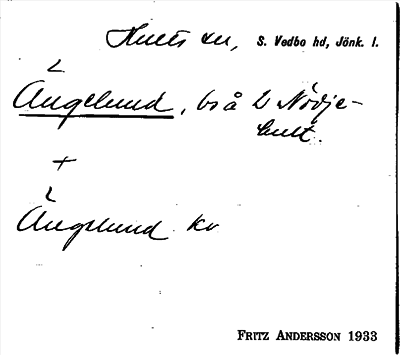 Hults sn, S. Vedbo hd, Jönk. l.
Ängelund, bs å 2 Nödje-
hult.
+
Ängelund kv
FRITZ ANDERSSON 1933